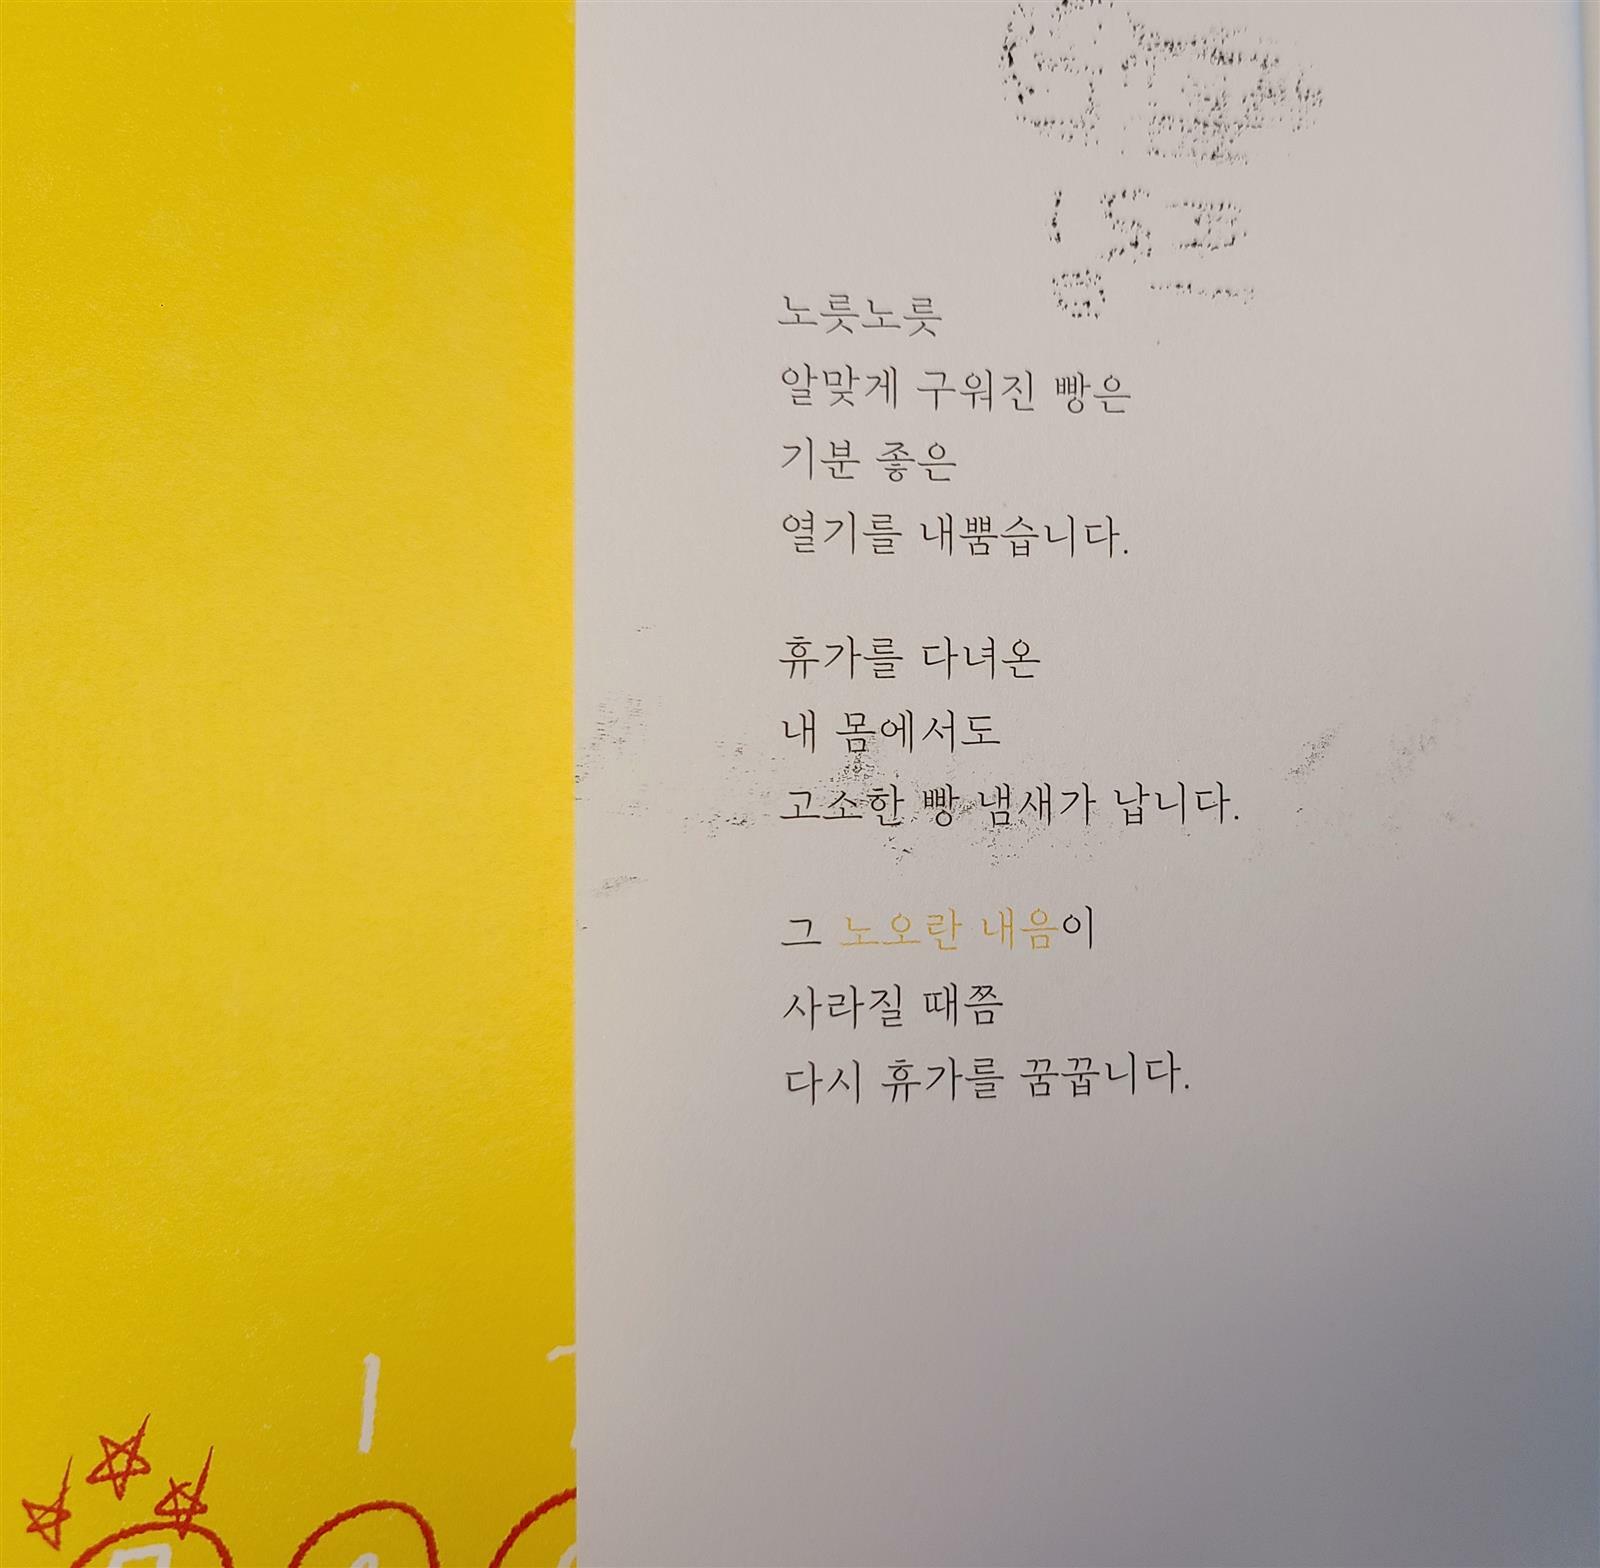 노릇노릇
알맞게 구워진 빵은
기분 좋은
열기를 내뿜습니다.
휴가를 다녀온
내 몸에서도
고소한 빵 냄새가 납니다.
그 노오란 내음이
사라질 때쯤
다시 휴가를 꿈꿉니다.
1